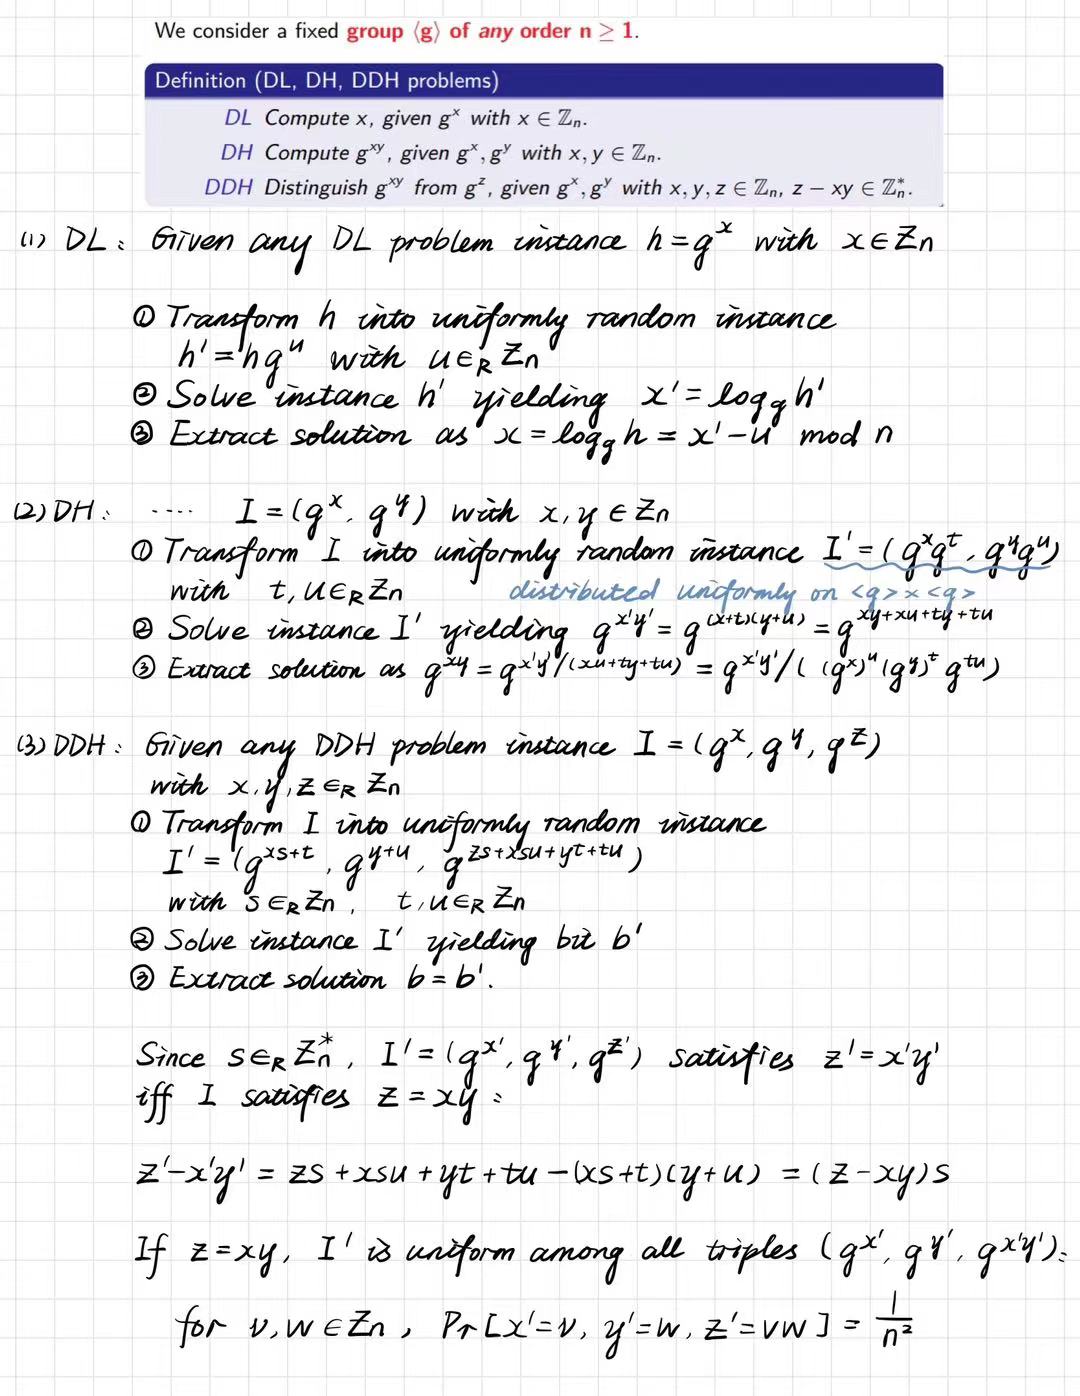 We consider a fixed group ⟨g⟩ of any order n ≥ 1.
Definition (DL, DH, DDH problems)
DL Compute x, given g^x with x ∈ ℤ_n.
DH Compute g^{xy}, given g^x, g^y with x, y ∈ ℤ_n.
DDH Distinguish g^{xy} from g^z, given g^x, g^y with x, y, z ∈ ℤ_n, z − xy ∈ ℤ_n^*.
(1) DL: Given any DL problem instance h = g^x with x ∈ ℤ_n
① Transform h into uniformly random instance
h' = hg^u with u ∈_R ℤ_n
② Solve instance h' yielding x' = log_g h'
③ Extract solution as x = log_g h = x' − u mod n
(2) DH: .... I = (g^x, g^y) with x, y ∈ ℤ_n
① Transform I into uniformly random instance I' = (g^x g^t, g^y g^u)
with t, u ∈_R ℤ_n distributed uniformly on <g> × <g>
② Solve instance I' yielding g^{x'y'} = g^{(x+t)(y+u)} = g^{xy+xu+ty+tu}
③ Extract solution as g^{xy} = g^{x'y'/(xu+ty+tu)} = g^{x'y'}/((g^x)^u (g^y)^t g^{tu})
(3) DDH: Given any DDH problem instance I = (g^x, g^y, g^z)
with x, y, z ∈_R ℤ_n
① Transform I into uniformly random instance
I' = (g^{xs+t}, g^{y+u}, g^{zs+xsu+yt+tu})
with s ∈_R ℤ_n, t, u ∈_R ℤ_n
② Solve instance I' yielding bit b'
③ Extract solution b = b'.
Since s ∈_R ℤ_n^*, I' = (g^{x'}, g^{y'}, g^{z'}) satisfies z' = x'y'
iff I satisfies z = xy:
z' − x'y' = zs + xsu + yt + tu − (xs+t)(y+u) = (z − xy)s
If z = xy, I' is uniform among all triples (g^{x'}, g^{y'}, g^{x'y'}):
for v, w ∈ ℤ_n, Pr[x' = v, y' = w, z' = vw] = 1/n²